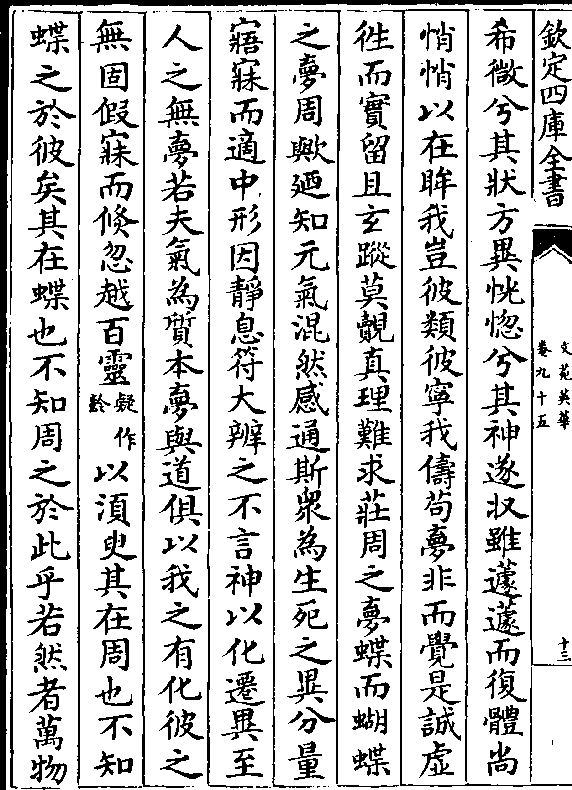 欽定四庫全書
文苑英華
卷九十五
十三
希微兮其狀方異恍惚兮其神遂収雖蘧蘧而復體尚
悄悄以在眸我豈彼類彼寧我儔茍夢非而覺是誠虛
徃而實留且玄蹤莫覿真理難求莊周之夢蝶而蝴蝶
之夢周歟廼知元氣混然感通斯衆為生死之異分量
寤寐而適中形因靜息符大辨之不言神以化遷異至
人之無夢若夫氣為質本夢與道俱以我之有化彼之
無固假寐而倏忽越百靈疑作齡以湏臾其在周也不知
蝶之於彼矣其在蝶也不知周之於此乎若然者萬物